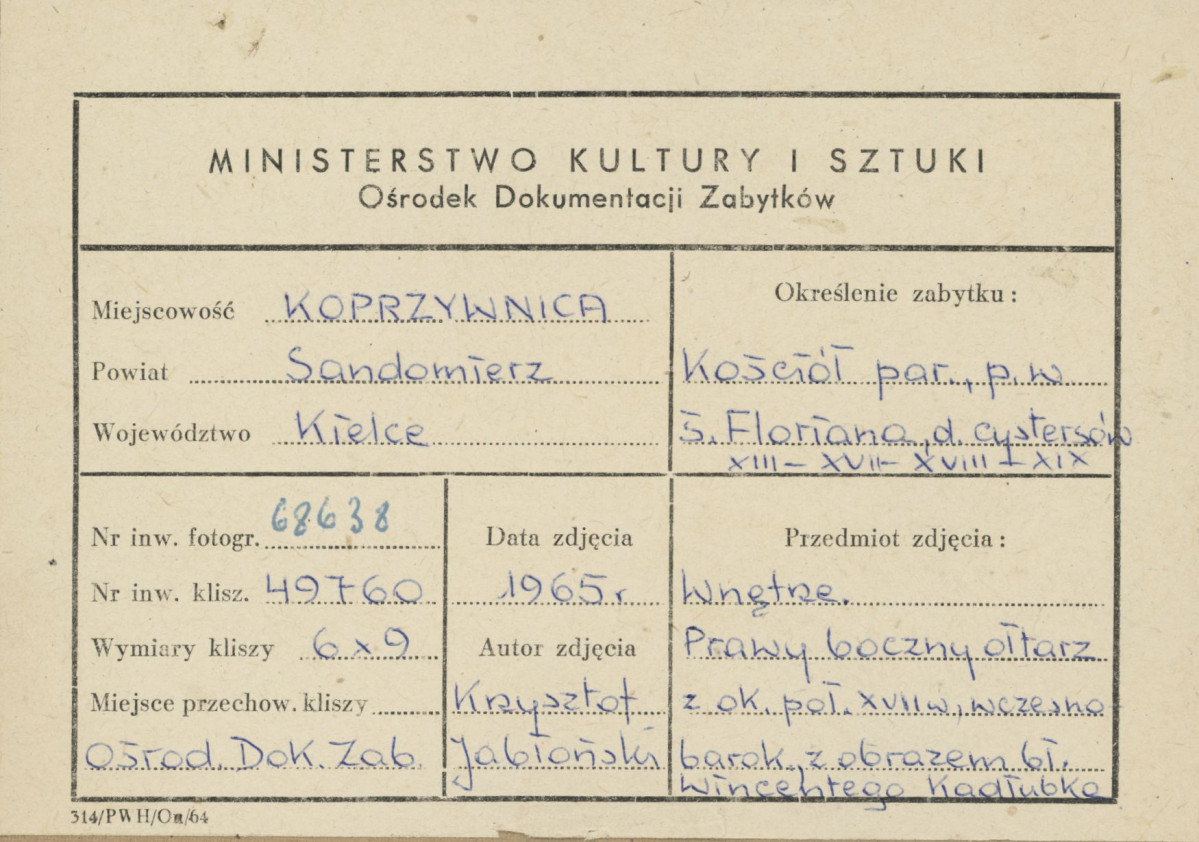 MINISTERSTWO KULTURY I SZTUKI
Ośrodek Dokumentacji Zabytków
Miejscowość KOPRZYWNICA
Powiat Sandomierz
Województwo Kielce
Określenie zabytku:
Kościół par., p.w.
ś. Floriana, d. cystersów
XIII – XVII – XVIII – XIX
Nr inw. fotogr. 68638
Nr inw. klisz. 49760
Wymiary kliszy 6 x 9
Miejsce przechow. kliszy
Ośrod. Dok. Zab.
Data zdjęcia
1965 r
Autor zdjęcia
Krzysztof
Jabłoński
Przedmiot zdjęcia:
Wnętrze.
Prawy boczny ołtarz
z ok. poł. XVII w, wczesno
barok., z obrazem bł.
Wincentego Kadłubka
314/PWH/Om/64